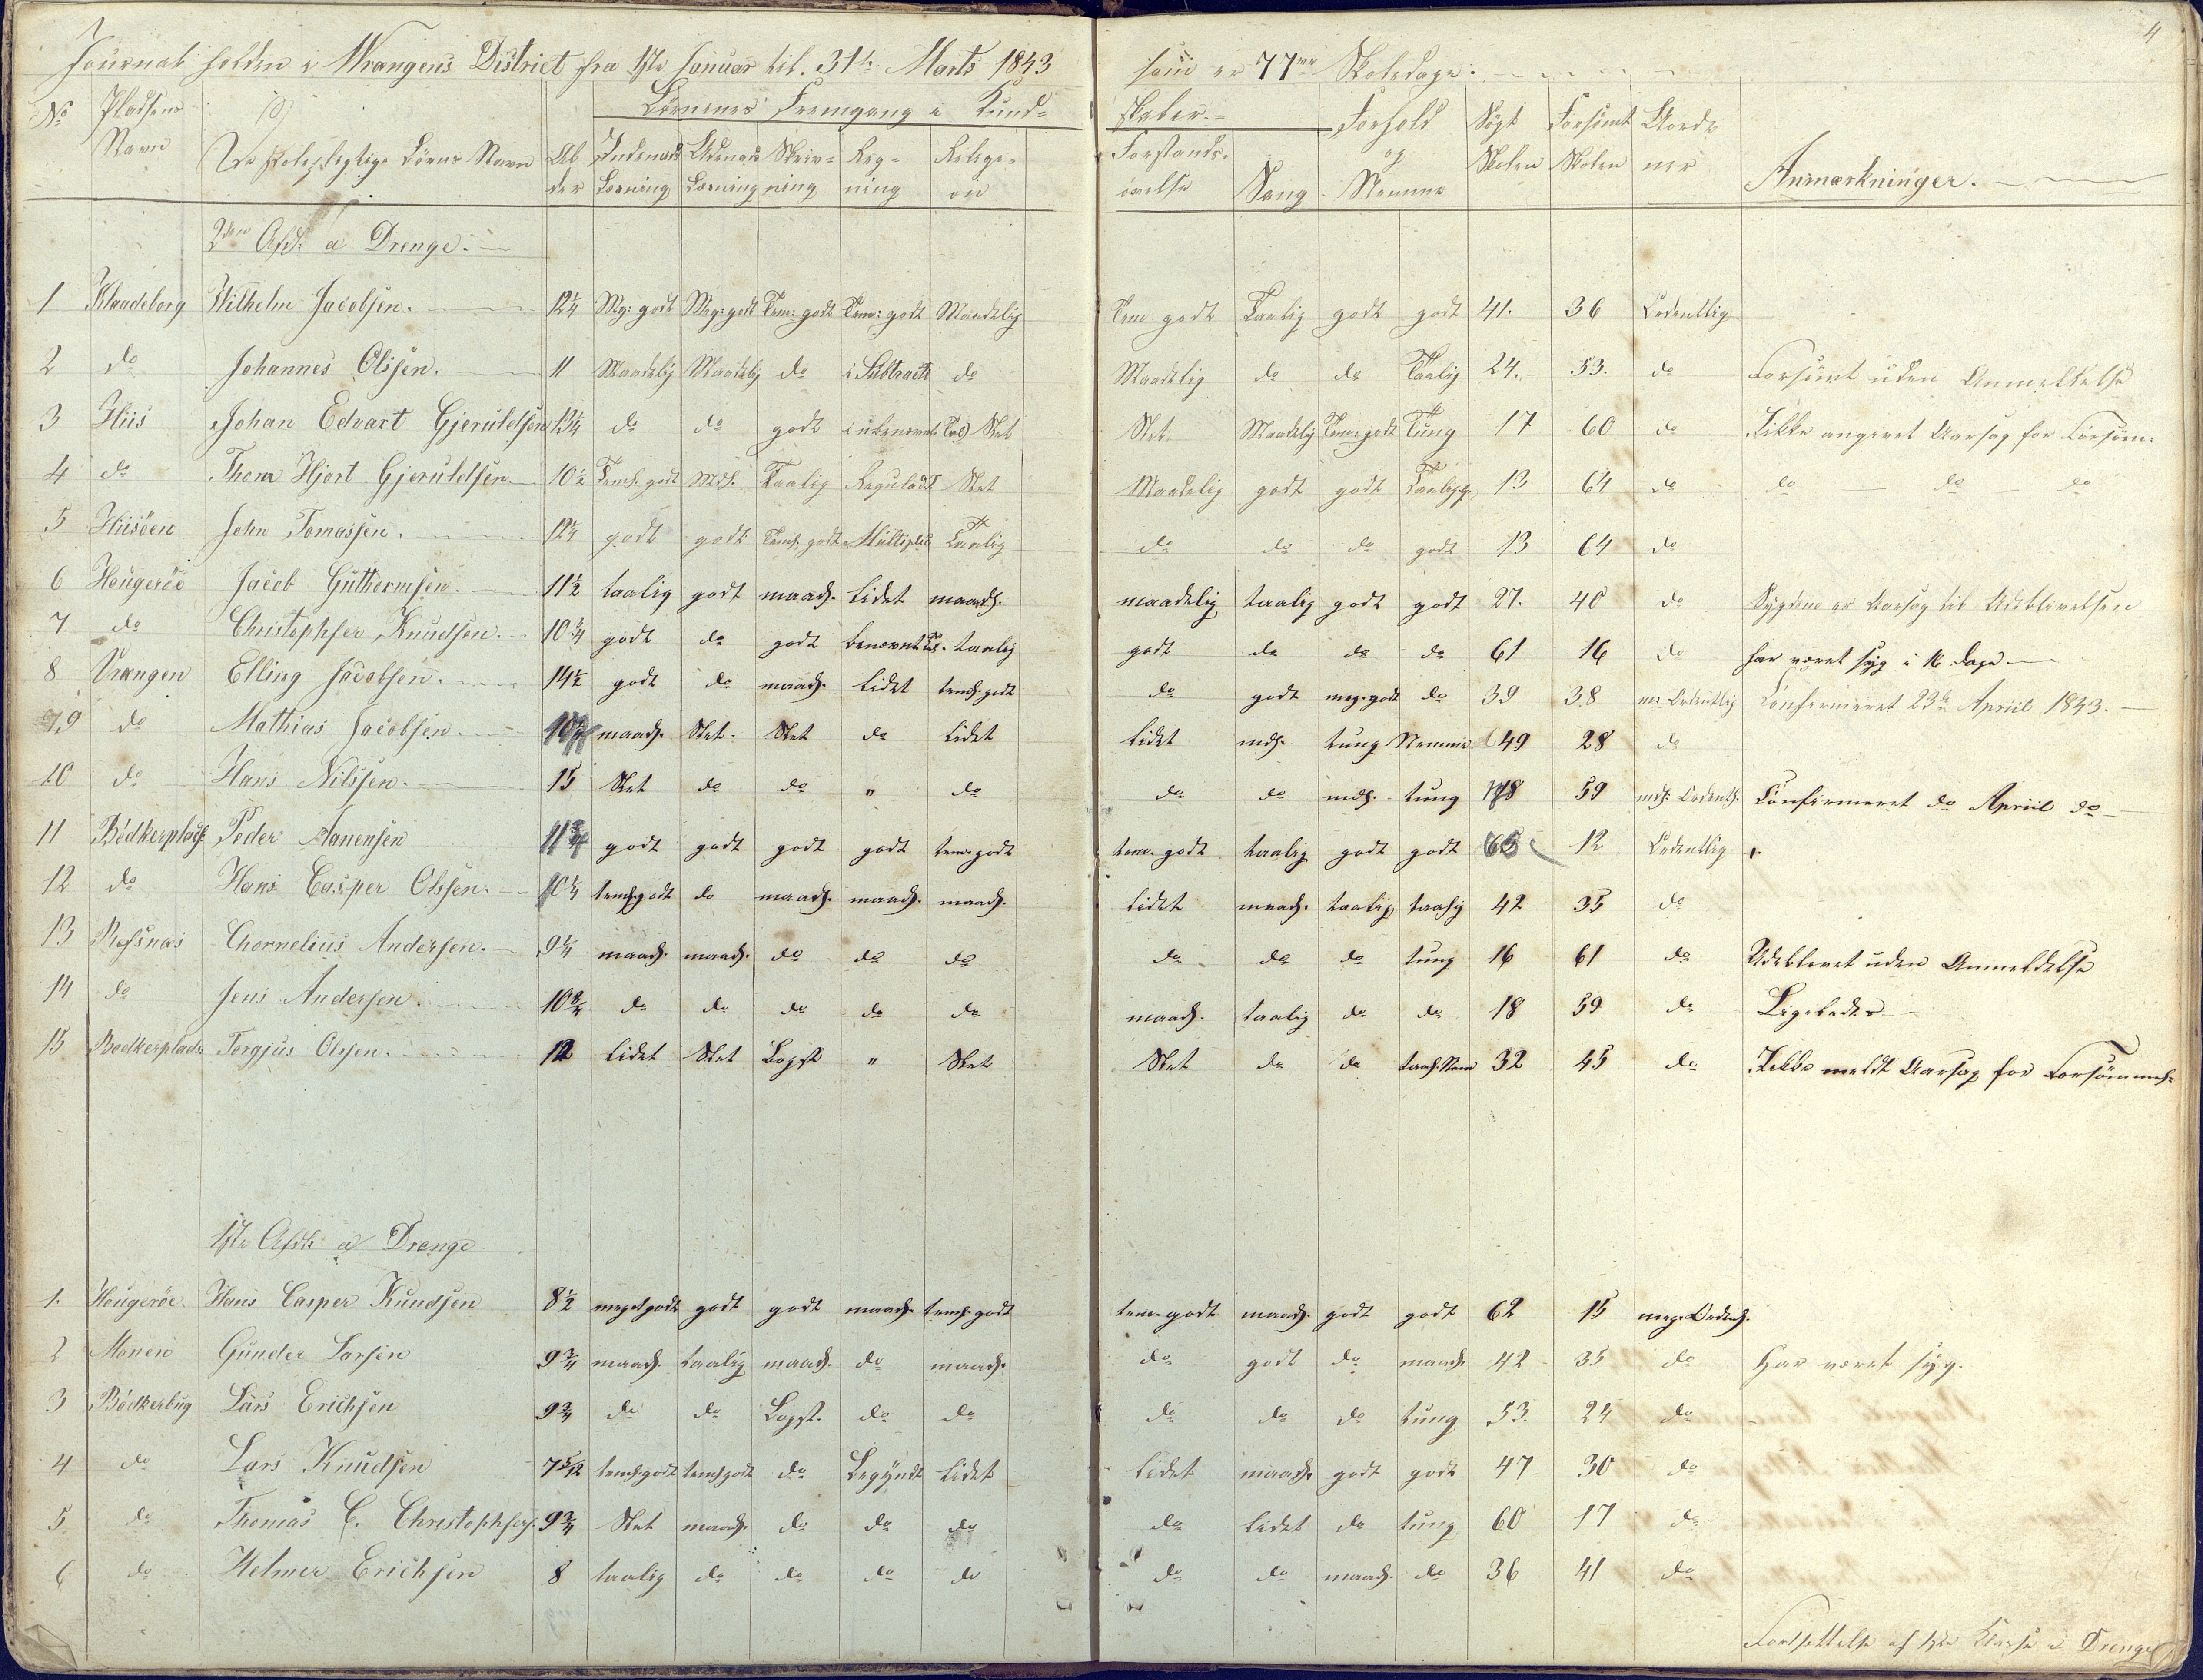 4
Journal holden i Wrangens District fra 1ste Januar til 31te Marts 1843 som er 77 Skoledage.
No Pladsens Navn De skolepligtige Börns Navn Alder Börnenes Fremgang i Kundskaber Forhold og Nemme Sögt Skolen Forsömt Skolen Anmærkninger.
Indenads Læsning Udenads Læsning Skrivning Regning Religion Forstands-övelse Sang
2den Afd: a Drenge.
1 Klaudeborg Wilhelm Jacobsen. 12¼ Mg: godt Meg: godt Tem: godt Tem: godt Maadelig Tem: godt Taalig godt godt 41. 36 Ordentlig
2 do Johannes Olssen. 11 Maadelig Maadelig do i Subtract: do Maadelig do do Taalig 24. 53. do Forsömt uden Anmeldelse
3 Hiis Johan Edvart Gjeruldsen 13¼ do do godt Slet Slet Maadelig Tem: godt Tung 17 60 do Ikke angivet Aarsag for Forsöm:
4 do Thom Hjort Gjeruldsen 10½ Teml. godt Mdl. Taalig Reguladt Slet Maadelig godt godt 13 64 do do do do
5 Hiisöen John Tomassen. 12¼ godt godt Teml. godt Multiplic Taalig do do do godt 13 64 do
6 Hougeröe Jacob Guthormsen. 11½ taalig godt maadl. lidet maadl. maadelig taalig godt godt 27. 40 do Sygdom er Aarsag til Udeblivelsen
7 do Christopher Knudsen. 10¾ godt do godt benævnt taalig godt do do do 61 16 do har været syg i 16 dage
8 Vrangen Elling Jacobsen. 14½ godt do maadl. lidet teml. godt do godt meg: godt do 39 38 m: Ordentlig Confirmeret 23de April 1843.
9 do Mathias Jacobsen. maadl. Slet. Slet do lidet lidet mdl. tung Nemme 49 28 do
10 do Hans Nilssen. 15 Slet do do " do do do mdl. tung 18 59 mdl: Ordentl. Confirmeret do April do
11 Bödkerplads Peder Aanensen 11¾ godt godt godt godt tem: godt tem: godt taalig godt godt 65 12 Ordentlig
12 do Hans Casper Olssen. 10¼ teml. godt do maadl. maadl. maadl. lidet maadl. taalig taalig 42 35 do
13 Rossnæs Chornelius Andersen. 9¼ maadl. maadl. do do do do do do tung 16 61 do Udeblevet uden Anmeldelse
14 do Jens Andersen. 10¾ do do do do do maadl. taalig do do 18 59 do Ligeledes
15 Bödkerplads Torgjus Olssen. 12 lidet Slet Begst. " Slet Slet do do 32 45 do Ikke meldt Aarsag for Forsömmel:
1ste Afd: a Drenge
1. Hougeröe. Hans Casper Knudsen 8½ meget godt godt godt maadl. teml. godt tem. godt maadl. godt godt 62 15 meg: Ordentl.
2 Monen Gunder Larsen 9¾ maadl. taalig maadl. do maadl. do godt do maadl. 42 35 do Har været syg.
3 Bödkerbug Lars Erichsen 9¾ do do Begst. do do do do do tung 53. 24 do
4 do Lars Knudsen 7 5/12 teml. godt teml. godt do Begyndt lidet lidet maadl. godt godt 47 30 do
5. do Thomas C. Christophers. 9¾ Slet maadl. do do do do lidet do tung 60 17 do
6 do Helmer Erichsen 8 taalig do do do do do do maadl. do 36 41 do
Fortsettelse af 1ste Klasse a Drenge